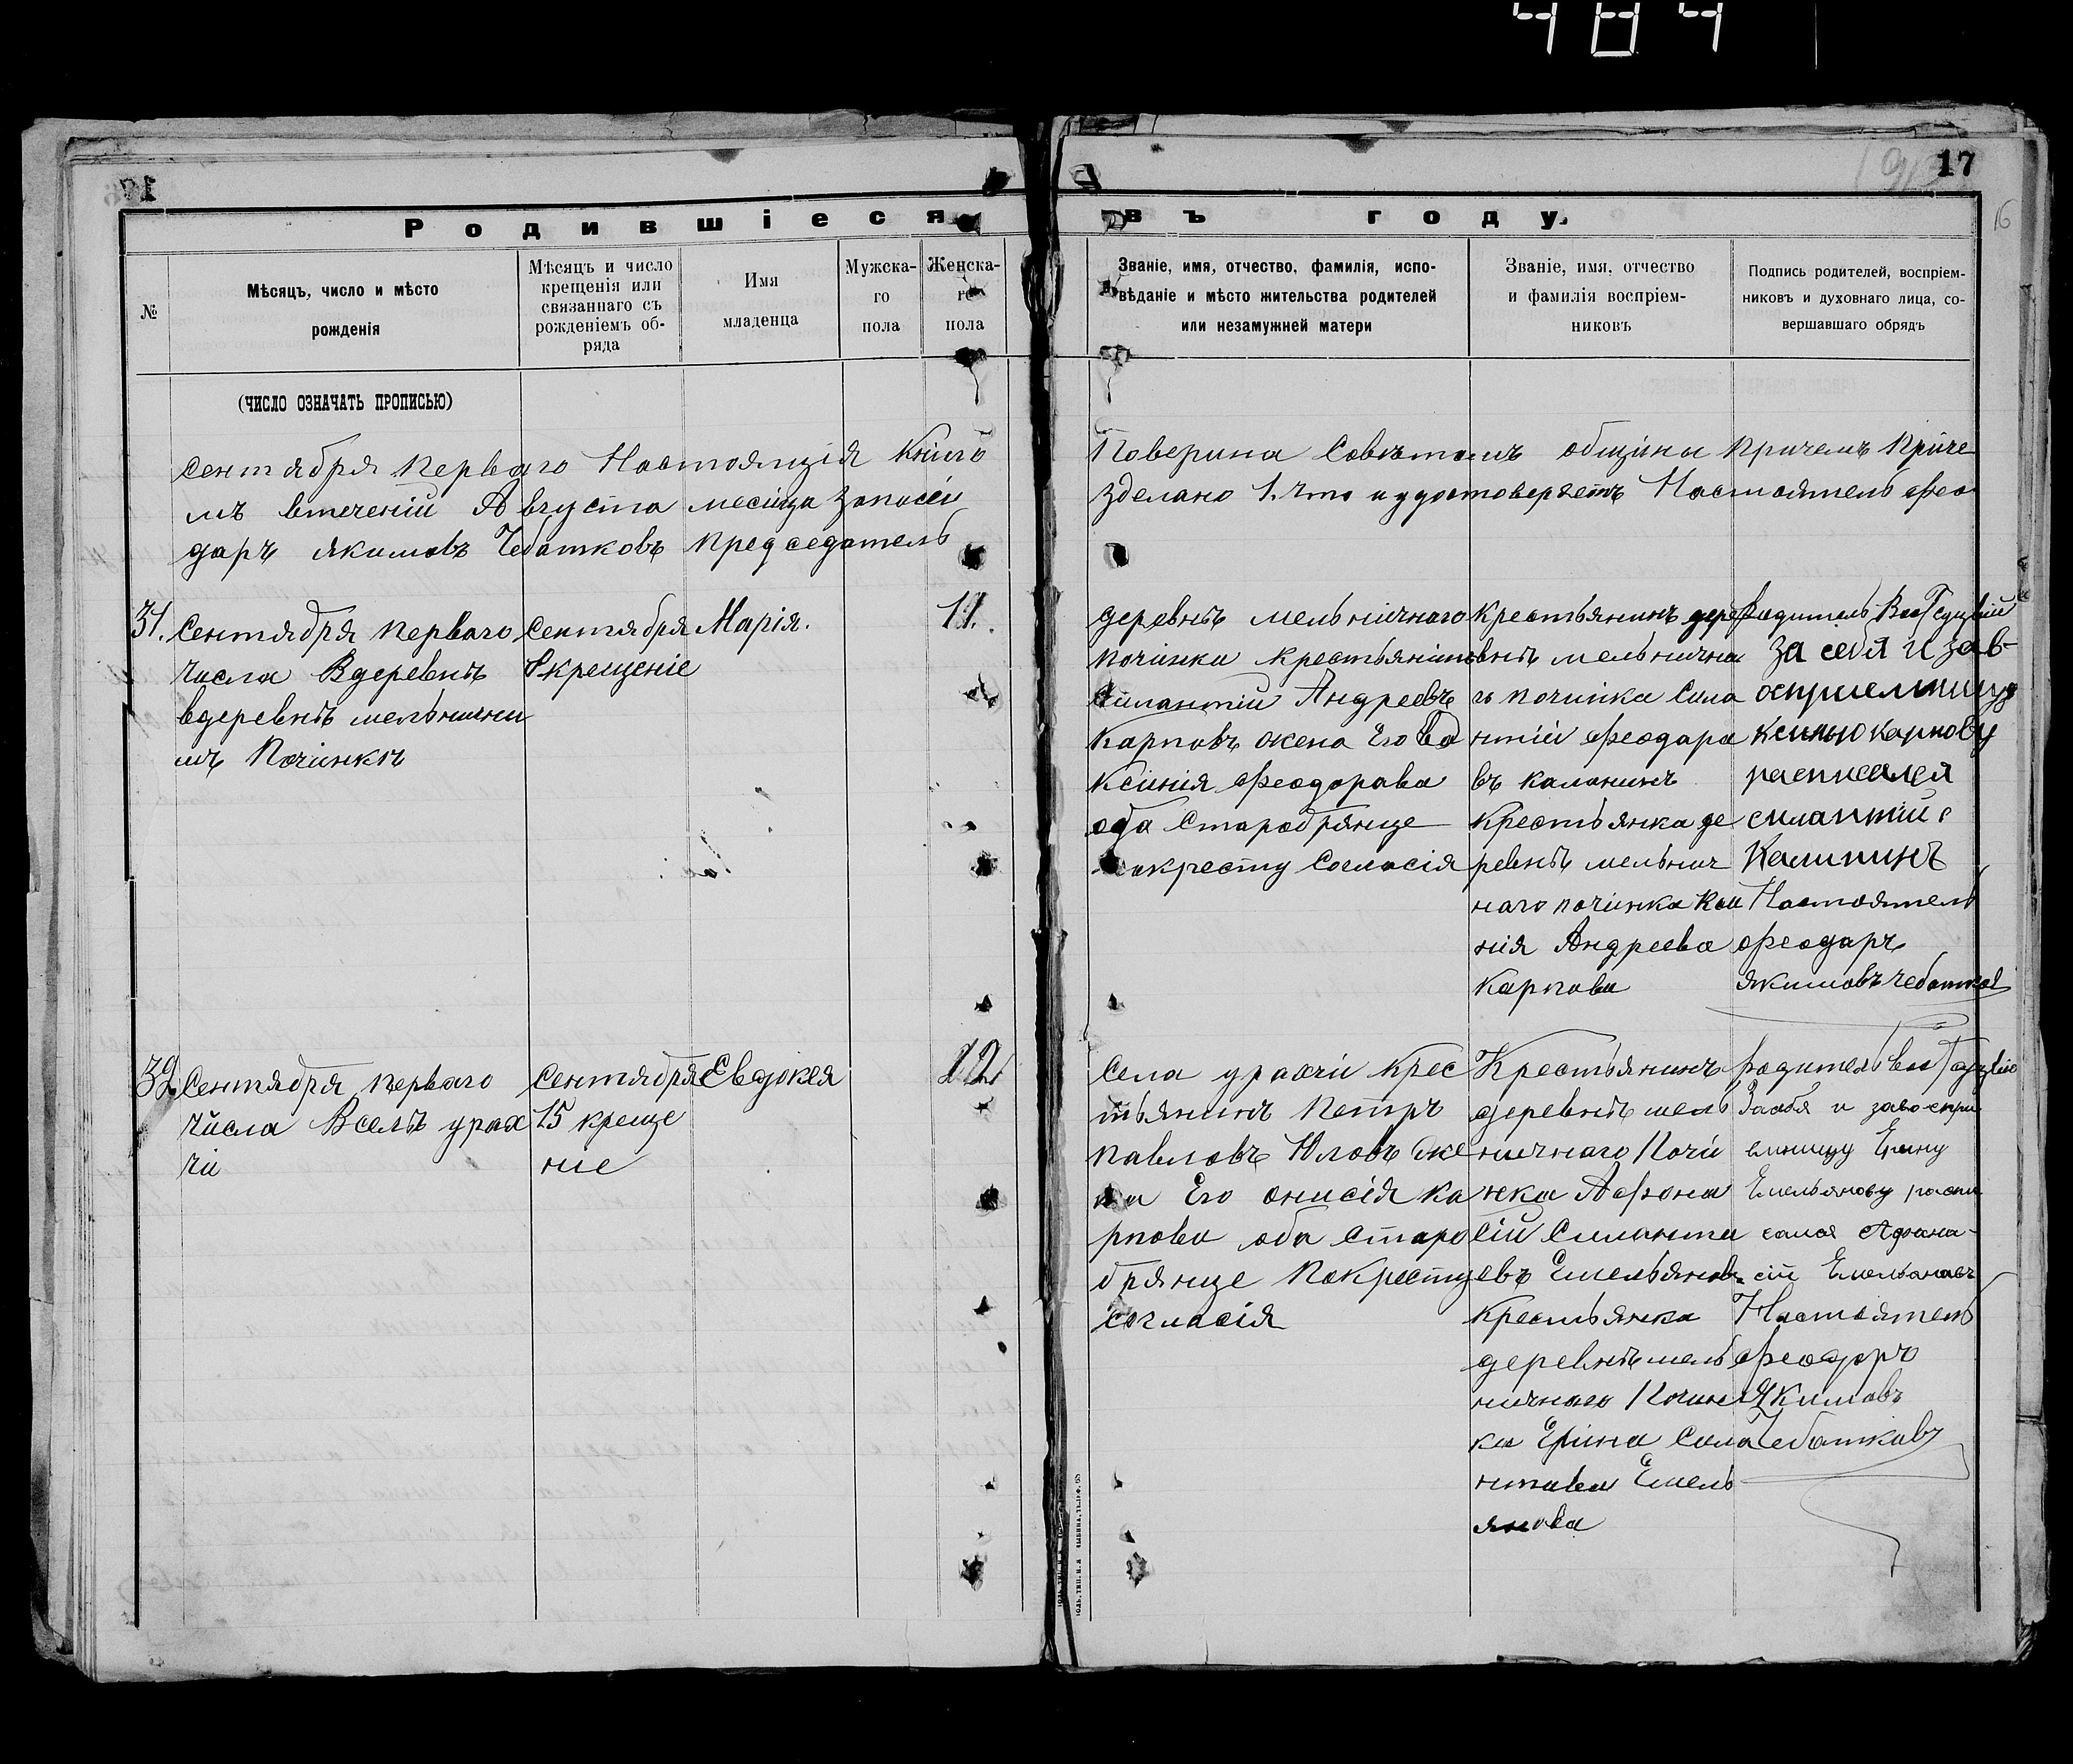 484
17
16
Родившіеся въ году
№
Мѣсяцъ, число и мѣсто
рожденія
Мѣсяцъ и число
крещенія или
связаннаго съ
рожденіемъ об-
ряда
Имя
младенца
Мужска-
го
пола
Женска-
го
пола
Званіе, имя, отчество, фамилія, испо-
вѣданіе и мѣсто жительства родителей
или незамужней матери
Званіе, имя, отчество
и фамилія воспріем-
никовъ
Подпись родителей, воспріем-
никовъ и духовнаго лица, со-
вершавшаго обрядъ
(ЧИСЛО ОЗНАЧАТЬ ПРОПИСЬЮ)
сентября перваго Настоящія книго Поверина Советомъ общины причемъ приче
мъ втеченіи Августа месяца записей зделано 1. что и удостоверяетъ Настоятель Фео
даръ якимовъ Чебатковъ председатель
31.
Сентября перваго
числа Вдеревнѣ
вдеревнѣ мельнични
мъ Починкѣ
Сентября
8 крещеніе
Марія.
11.
деревнѣ мельничнаго
починка крестьянинъ
Силантій Андреевъ
Карповъ жена Его
Ксинія Феодорава
оба Старобрянце
покресту Согласія
крестьянинъ дере
внѣ мельнична
го починка Сила
нтій Феодара
въ калининъ
Крестьянка де
ревнѣ мельнич
наго починка Ксе
нія Андреева
Карпова
Родитель
За себя и зав-
осприемницу
Ксинью Карпову
расписался
силантий
Калининъ
Настоятель
Феодаръ
якимовъ чебатков
32
Сентября перваго
числа Вселѣ урах
чи
Сентября
15 креще
ние
Евдокея
12
Села урахчи Крес
тьянинъ Петръ
Павловъ Юловъ же
на Его анисія ка
рпова оба Старо
брянце Покресту
согласія
Крестьянинъ
деревнѣ мель
ничнаго Почи
нка Афона
сій Силанти
евъ Емельяновъ
крестьянка
деревнѣ мель
ничнаго Почин
ка Ерина Сила
нтиева Емель
янова
родитель
Засебя и заво спри
емницу Ерину
Емельянову распи
сался Афона-
сій Емельановъ
Настоятель
Феодоръ
Якимовъ
Чебатковъ